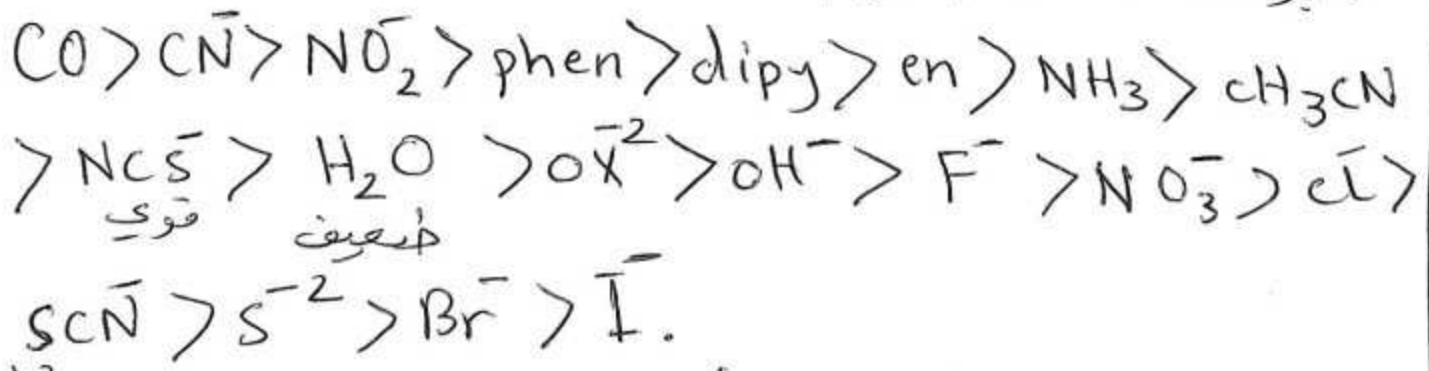 CO > CN⁻ > NO₂⁻ > phen > dipy > en > NH₃ > CH₃CN
> NCS⁻ > H₂O > OX⁻² > OH⁻ > F⁻ > NO₃⁻ > Cl⁻ >
قوي ضعيف
SCN⁻ > S⁻² > Br⁻ > I⁻.